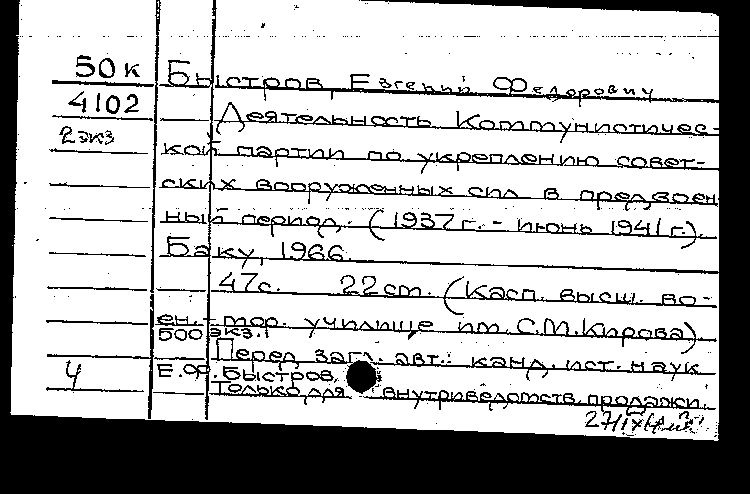 50к Быстров, Евгений Федорович
4102 Деятельность Коммунистичес-
2 экз
кой партии по укреплению совет-
ских вооруженных сил в предвоен
ный период. (1937г. - июнь 1941г.).
Баку, 1966.
47с. 22см. (Касп. высш. во-
ен.-мор. училище им. С.М.Кирова).
500 экз.
Перед загл. авт.: канд. ист. наук
Ч Е.Ф. Быстров.
Только для внутриведомств. продажи.